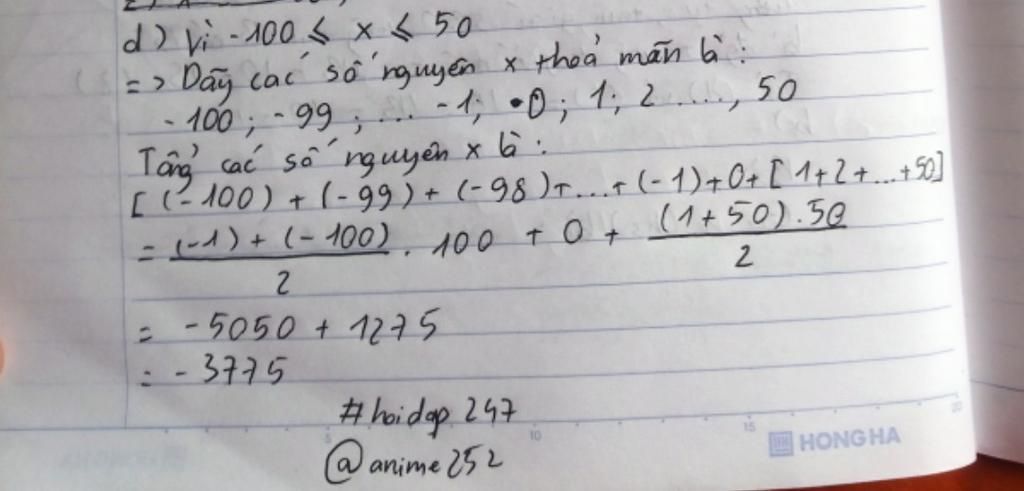 d) Vì -100 ≤ x ≤ 50
=> Dãy các số nguyên x thoả mãn là:
-100; -99; ... -1; 0; 1; 2 ...., 50
Tổng các số nguyên x là:
[(-100) + (-99) + (-98) + ... + (-1) + 0 + [1+2+...+50]
= (-1) + (-100) / 2 . 100 + 0 + (1+50).50 / 2
= -5050 + 1275
= -3775
#hoidap247
@anime252
5 10 15 20
HONG HA